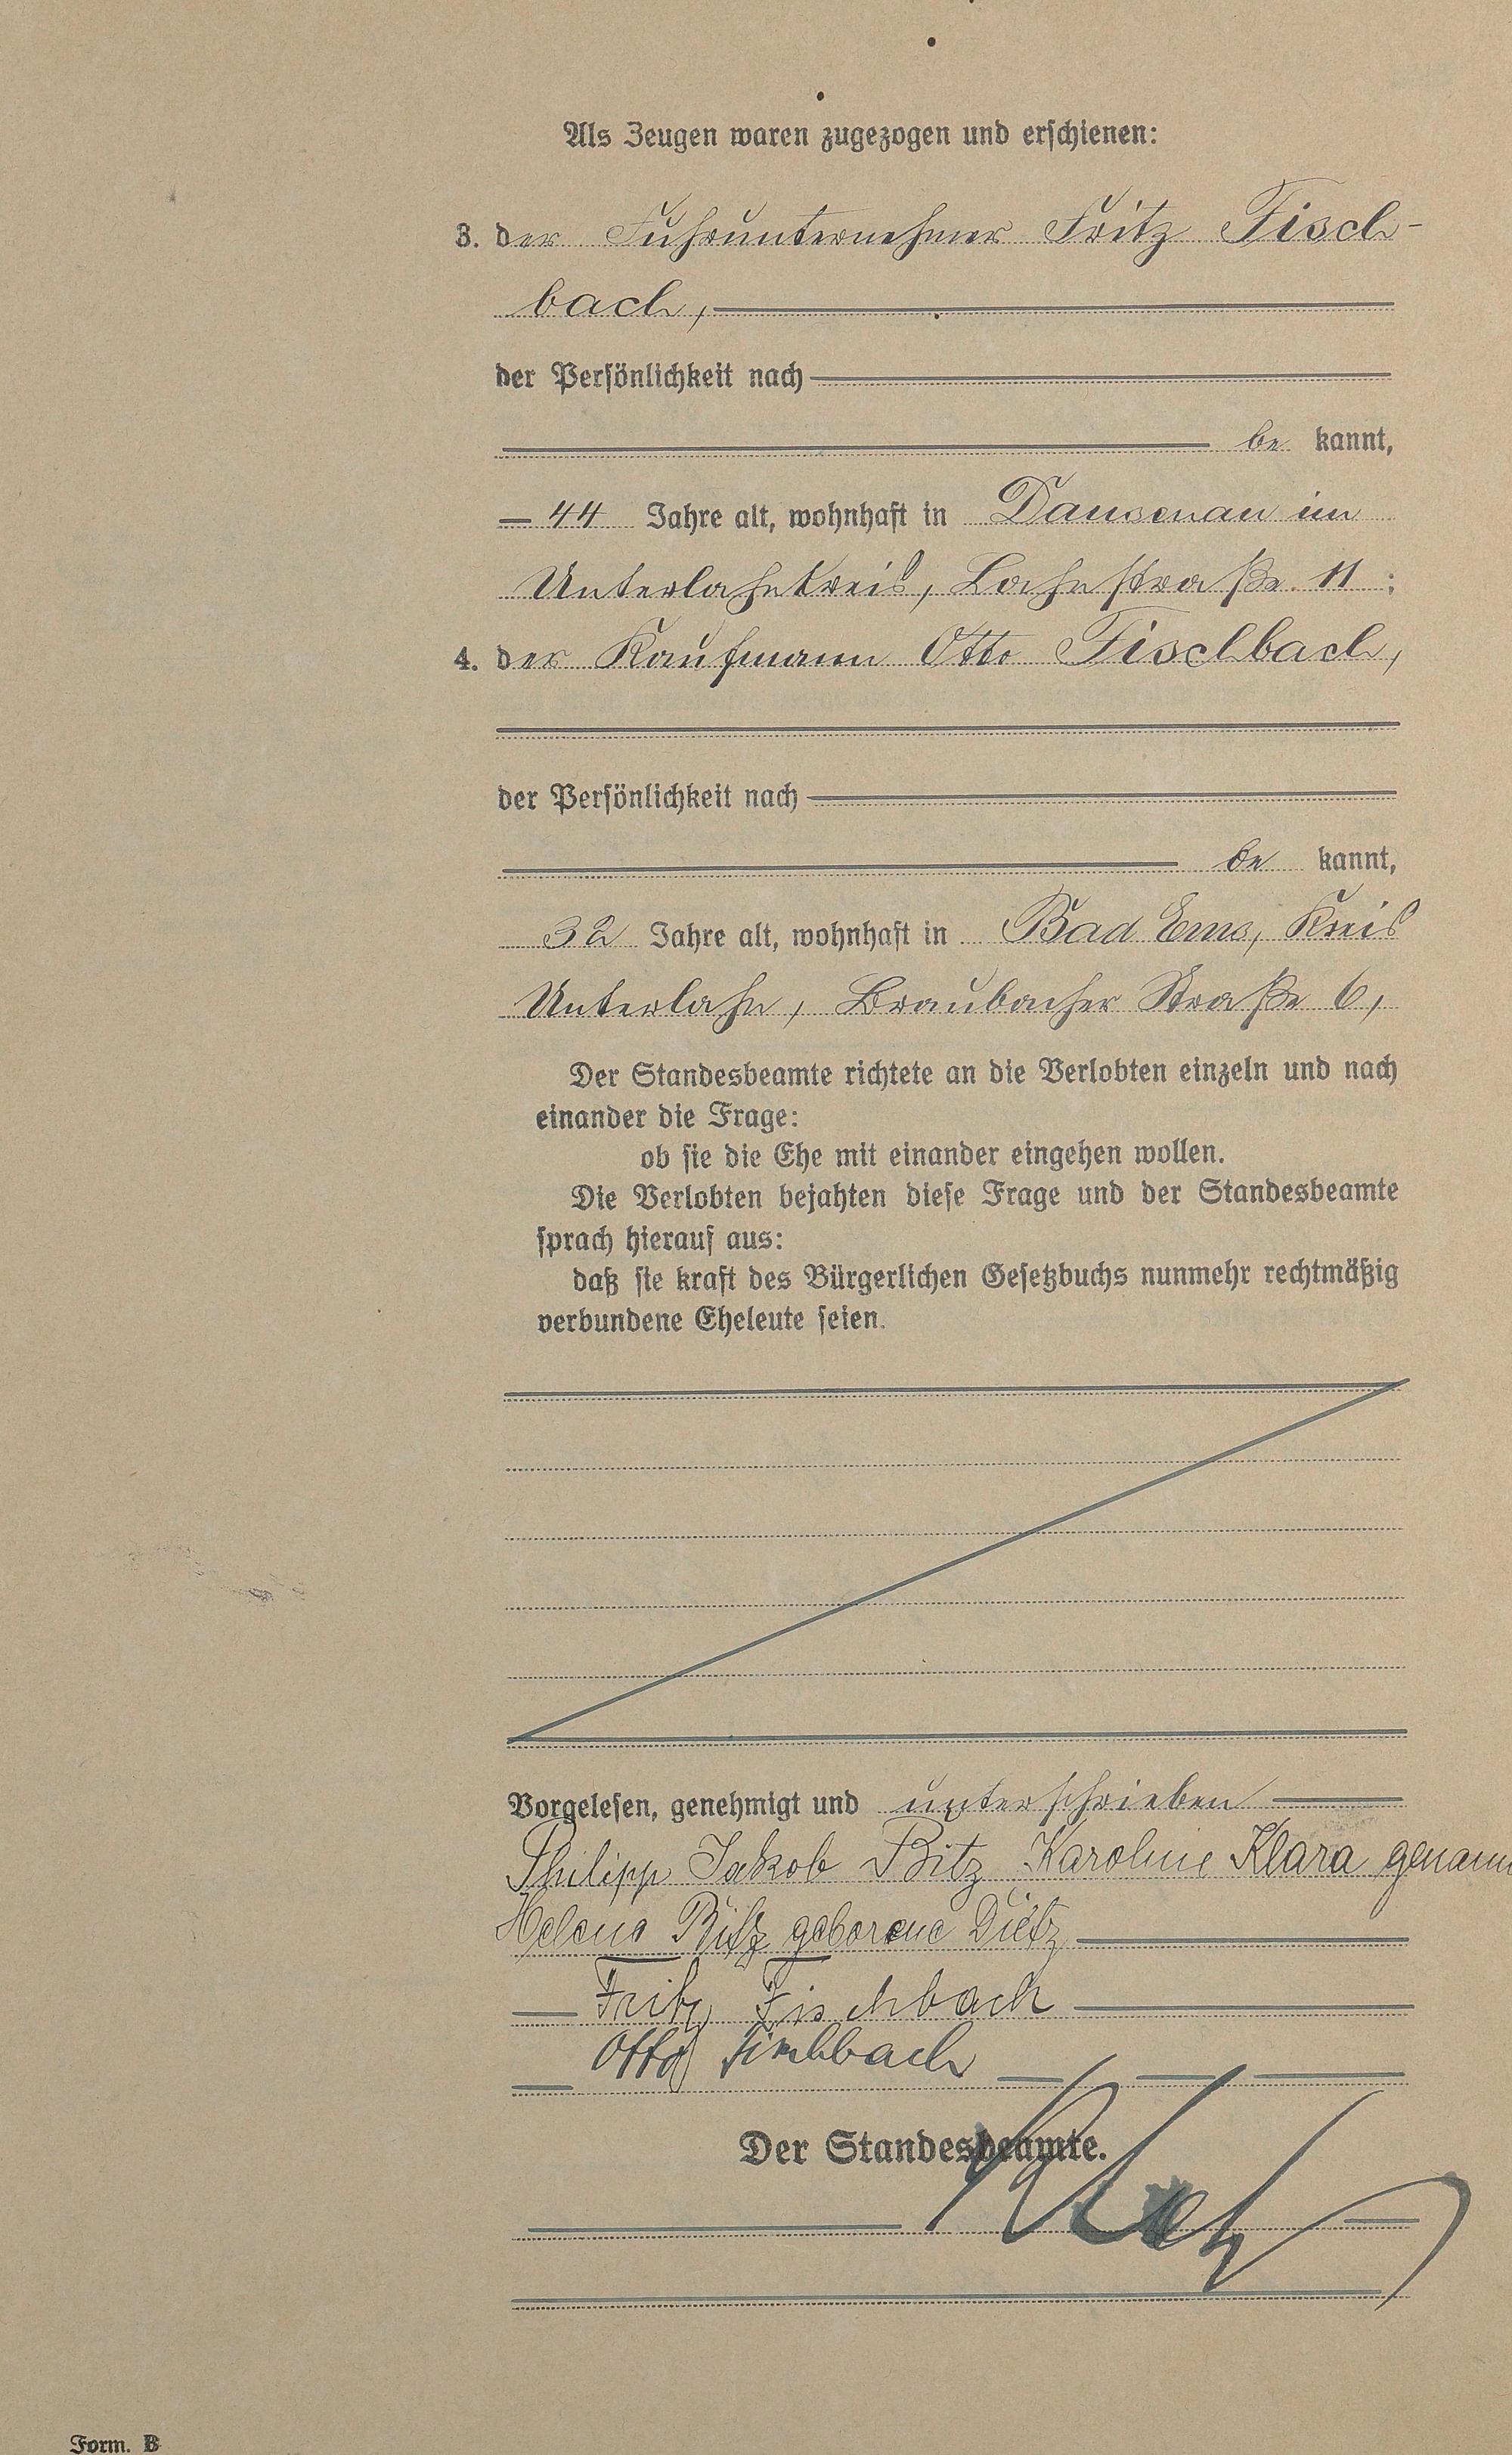 Als Zeugen waren zugezogen und erschienen:
3. der Fuhrunternehmer Fritz Fisch-
bach,
der Persönlichkeit nach
be kannt,
44 Jahre alt, wohnhaft in Dausenau im
Unterlahnkreis, Lahnstraße 11;
4. der Kaufmann Otto Fischbach,
der Persönlichkeit nach
be kannt,
32 Jahre alt, wohnhaft in Bad Ems, Kreis
Unterlahn, Braubacher Straße 6,
Der Standesbeamte richtete an die Verlobten einzeln und nach
einander die Frage:
ob sie die Ehe mit einander eingehen wollen.
Die Verlobten bejahten diese Frage und der Standesbeamte
sprach hierauf aus:
daß sie kraft des Bürgerlichen Gesetzbuchs nunmehr rechtmäßig
verbundene Eheleute seien.
Vorgelesen, genehmigt und unterschrieben
Philipp Jakob Bitz Karoline Klara genannt
Helene Bitz geborene Dietz
Fritz Fischbach
Otto Fischbach
Der Standesbeamte.
Form. B